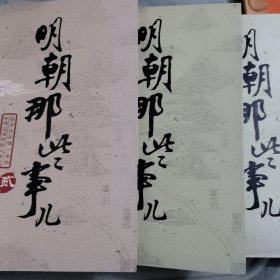 明朝那些事儿
贰
明朝那些事儿
明朝那些事儿